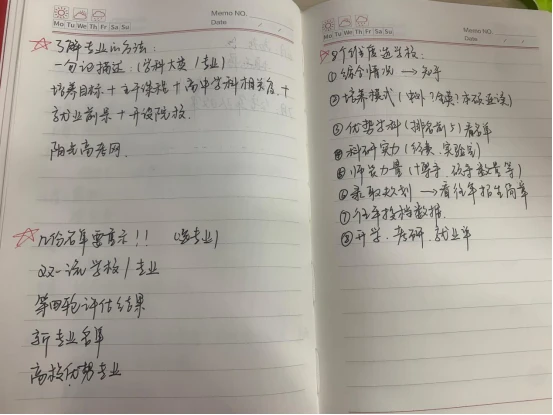 Memo NO.
Mo Tu We Th Fr Sa Su
Date
了解专业的方法:
一句话描述:(学科大类/专业)
培养目标+主干课程+高中学科相关度+
就业前景+开设院校.
阳光高考网.
几份名单要膏示!! (选专业)
双一流学校/专业
第四轮评估结果
新专业名单
高校优势专业
Memo NO.
Mo Tu We Th Fr Sa Su
Date
8个维度选学校:
①综合情况→知乎
②培养模式(中外?
③优势学科(排名前5)看名单
④科研实力(经费.实验室)
⑤师资力量(博导.硕导数量等)
⑥录取规则→看往年招生简章
⑦往年投档数据.
⑧升学.考研.就业率